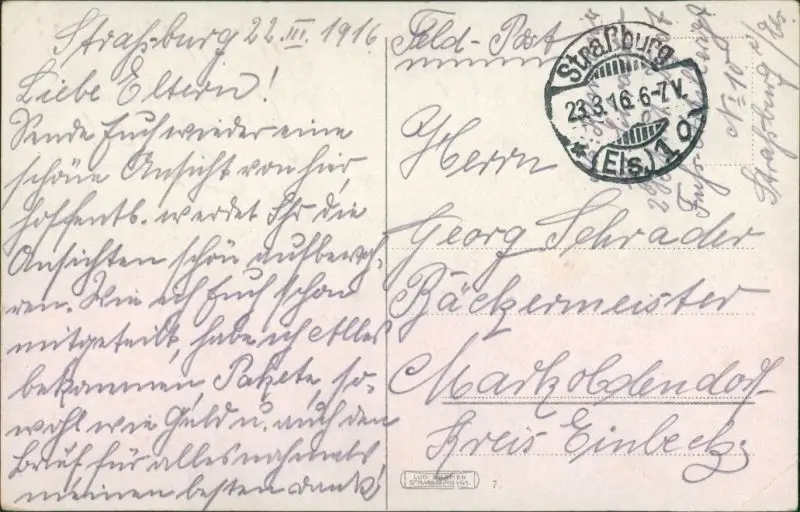 Straßburg 22. III. 1916
Liebe Eltern!
Sende Euch wieder eine
schöne Ansicht von hier,
hoffentl. werdet Ihr die
Ansichten schön aufbewah-
ren. Wie ich Euch schon
mitgeteilt, habe ich Alles
bekommen, Pakete, so-
wohl wie Geld u. auch den
Brief für alles nahmals
meinen besten Dank!
Feld-Post
Straßburg
23.3.16.6-7V.
* (Els.) 1 o
Herrn
Georg Schrader
Bäckermeister
Markoldendorf
Kreis Einbeck
No 10
Straßburg i/Els.
7.